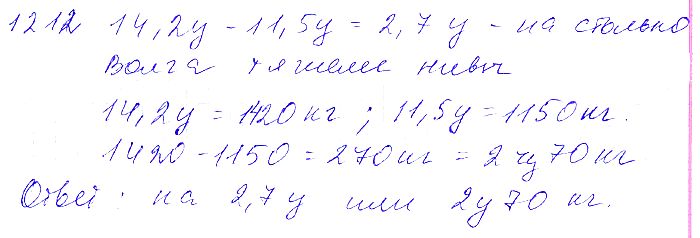 1212 14,2ц - 11,5ц = 2,7 ц - на столько
Волга тяжеле нивы
14,2ц = 1420 кг ; 11,5ц = 1150 кг.
1420 - 1150 = 270 кг = 2 ц 70 кг
Ответ : на 2,7 ц или 2ц 70 кг.